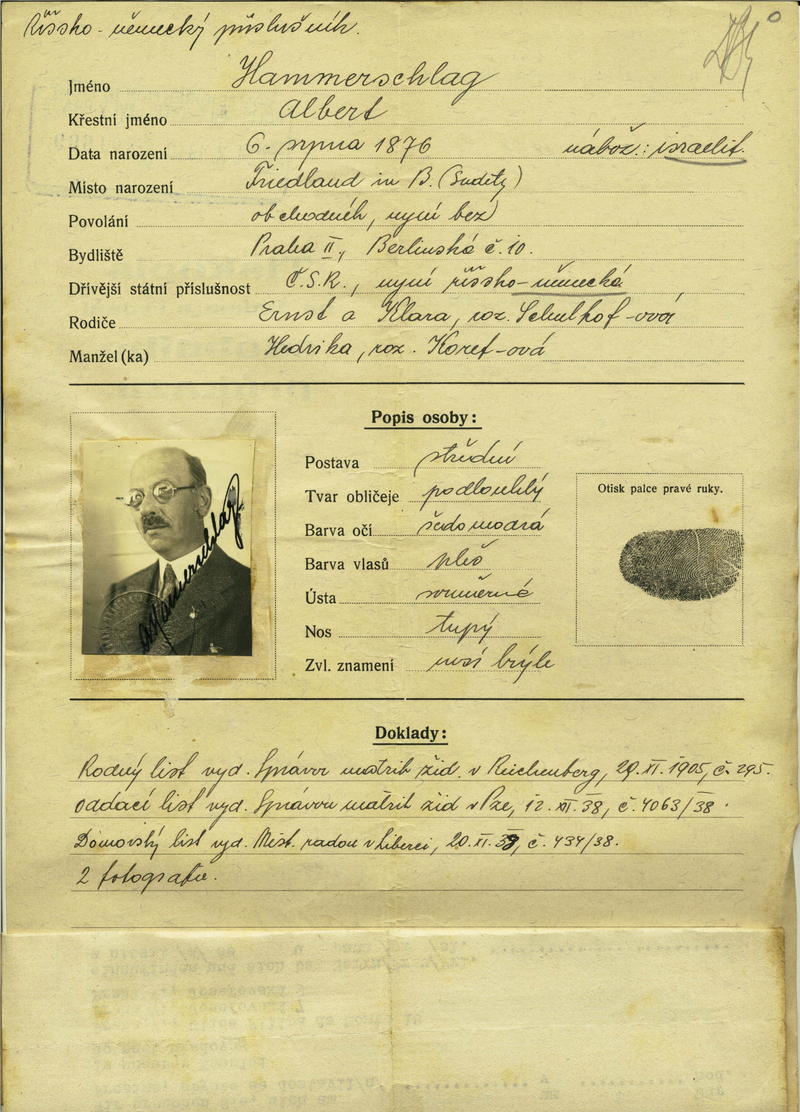 Říšsko-německý příslušník.
Jméno Hammerschlag
Křestní jméno Albert
Data narození 6. srpna 1876 nábož.: israelit.
Místo narození Friedland in B. (Sudety)
Povolání obchodník, nyní bez
Bydliště Praha II, Berlínská č. 10.
Dřívější státní příslušnost Č.S.R., nyní říšsko-německá
Rodiče Ernst a Klara, roz. Schulhof-ová
Manžel(ka) Hedvika, roz. Koref-ová
Popis osoby:
Postava střední
Tvar obličeje podlouhlý
Barva očí šedomodrá
Barva vlasů pleš
Ústa souměrné
Nos tupý
Zvl. znamení nosí brýle
AHammerschlag
Otisk palce pravé ruky.
Doklady:
Rodný list vyd. Správou matrik žid. v Reichenberg, 29. XI. 1905, č. 295.
Oddací list vyd. Správou matrik žid v Pze, 12. XII. 38, č. 4063/38.
Domovský list vyd. Měst. radou v Liberci, 20. XI. 38, č. 434/38.
2 fotografie.